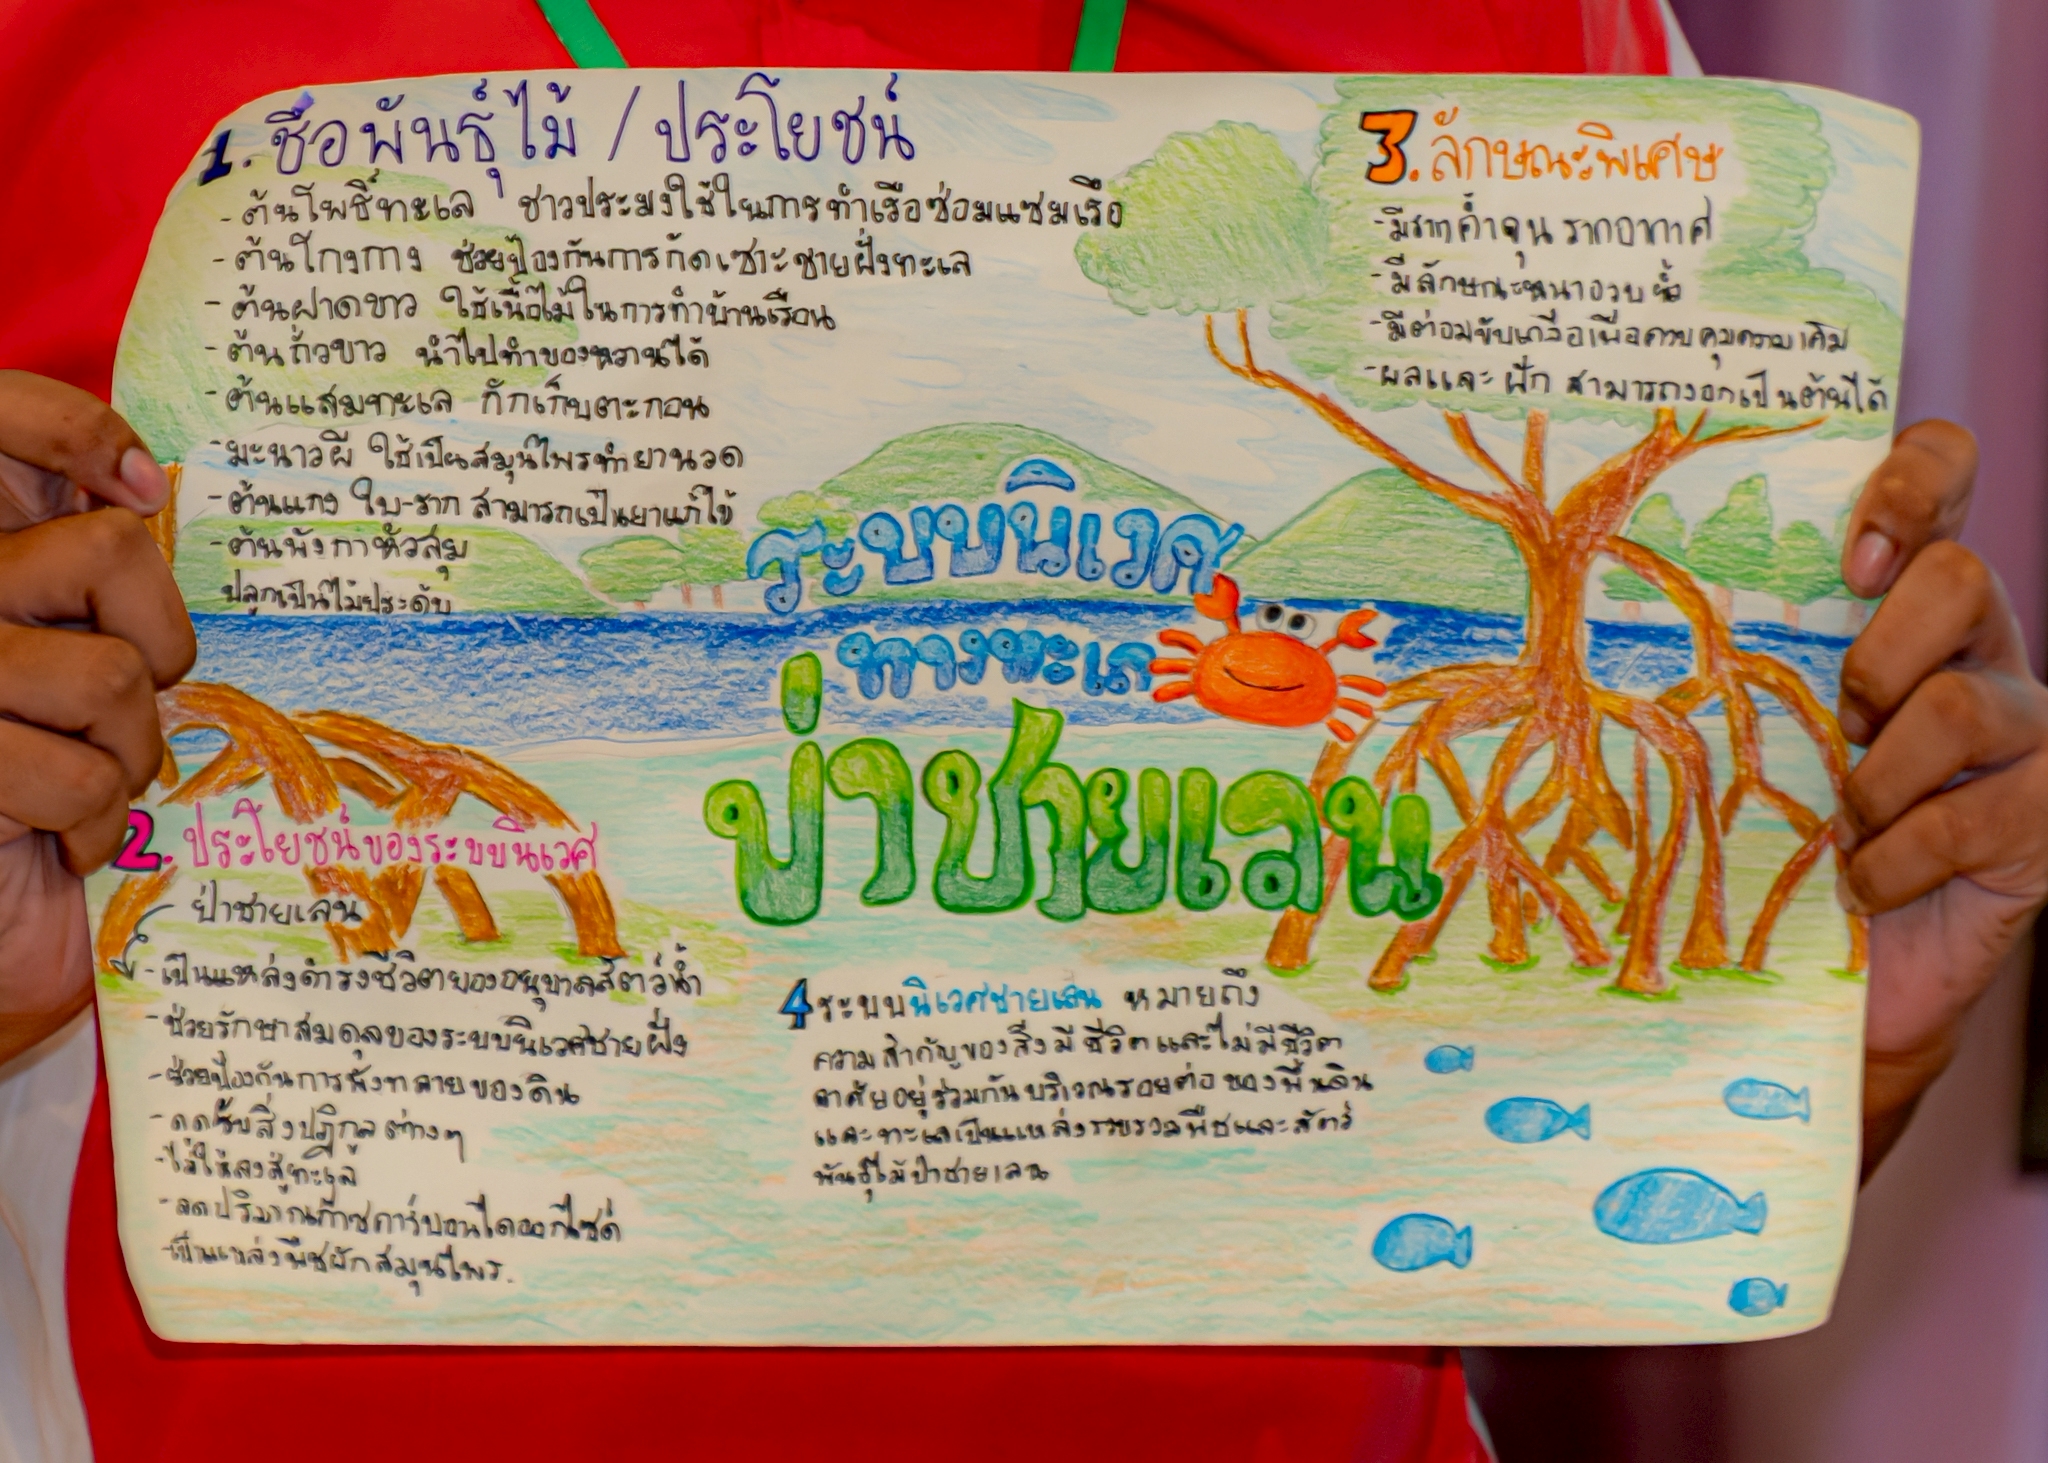 1. ชื่อพันธุ์ไม้ / ประโยชน์
- ต้นโพธิ์ทะเล ชาวประมงใช้ในการทำเรือซ่อมแซมเรือ
- ต้นโกงกาง ช่วยป้องกันการกัดเซาะชายฝั่งทะเล
- ต้นฝาดขาว ใช้เนื้อไม้ในการทำบ้านเรือน
- ต้นถั่วขาว นำไปทำของหวานได้
- ต้นแสมทะเล กักเก็บตะกอน
- มะนาวผี ใช้เป็นสมุนไพรทำยานวด
- ต้นแกง ใบ-ราก สามารถเป็นยาแก้ไข้
- ต้นพังกาหัวสุม
ปลูกเป็นไม้ประดับ
3. ลักษณะพิเศษ
- มีรากค้ำจุน รากอากาศ
- มีลักษณะหนาอวบ
- มีต่อมขับเกลือเพื่อควบคุมความเค็ม
- ผลและ ฝัก สามารถงอกเป็นต้นได้
ระบบนิเวศ
ทางทะเล
ป่าชายเลน
2. ประโยชน์ของระบบนิเวศ
ป่าชายเลน
- เป็นแหล่งดำรงชีวิตของอนุบาลสัตว์น้ำ
- ช่วยรักษาสมดุลของระบบนิเวศชายฝั่ง
- ช่วยป้องกันการพังทลายของดิน
- ดูดซับสิ่งปฏิกูลต่างๆ
- ไม่ให้ลงสู่ทะเล
- ลดปริมาณก๊าซคาร์บอนไดออกไซด์
- เป็นแหล่งพืชผักสมุนไพร.
4 ระบบนิเวศชายเลน หมายถึง
ความสำคัญของสิ่งมีชีวิตและไม่มีชีวิต
อาศัยอยู่ร่วมกันบริเวณรอยต่อของพื้นดิน
และทะเลเป็นแหล่งรวบรวมพืชและสัตว์
พันธุ์ไม้ป่าชายเลน